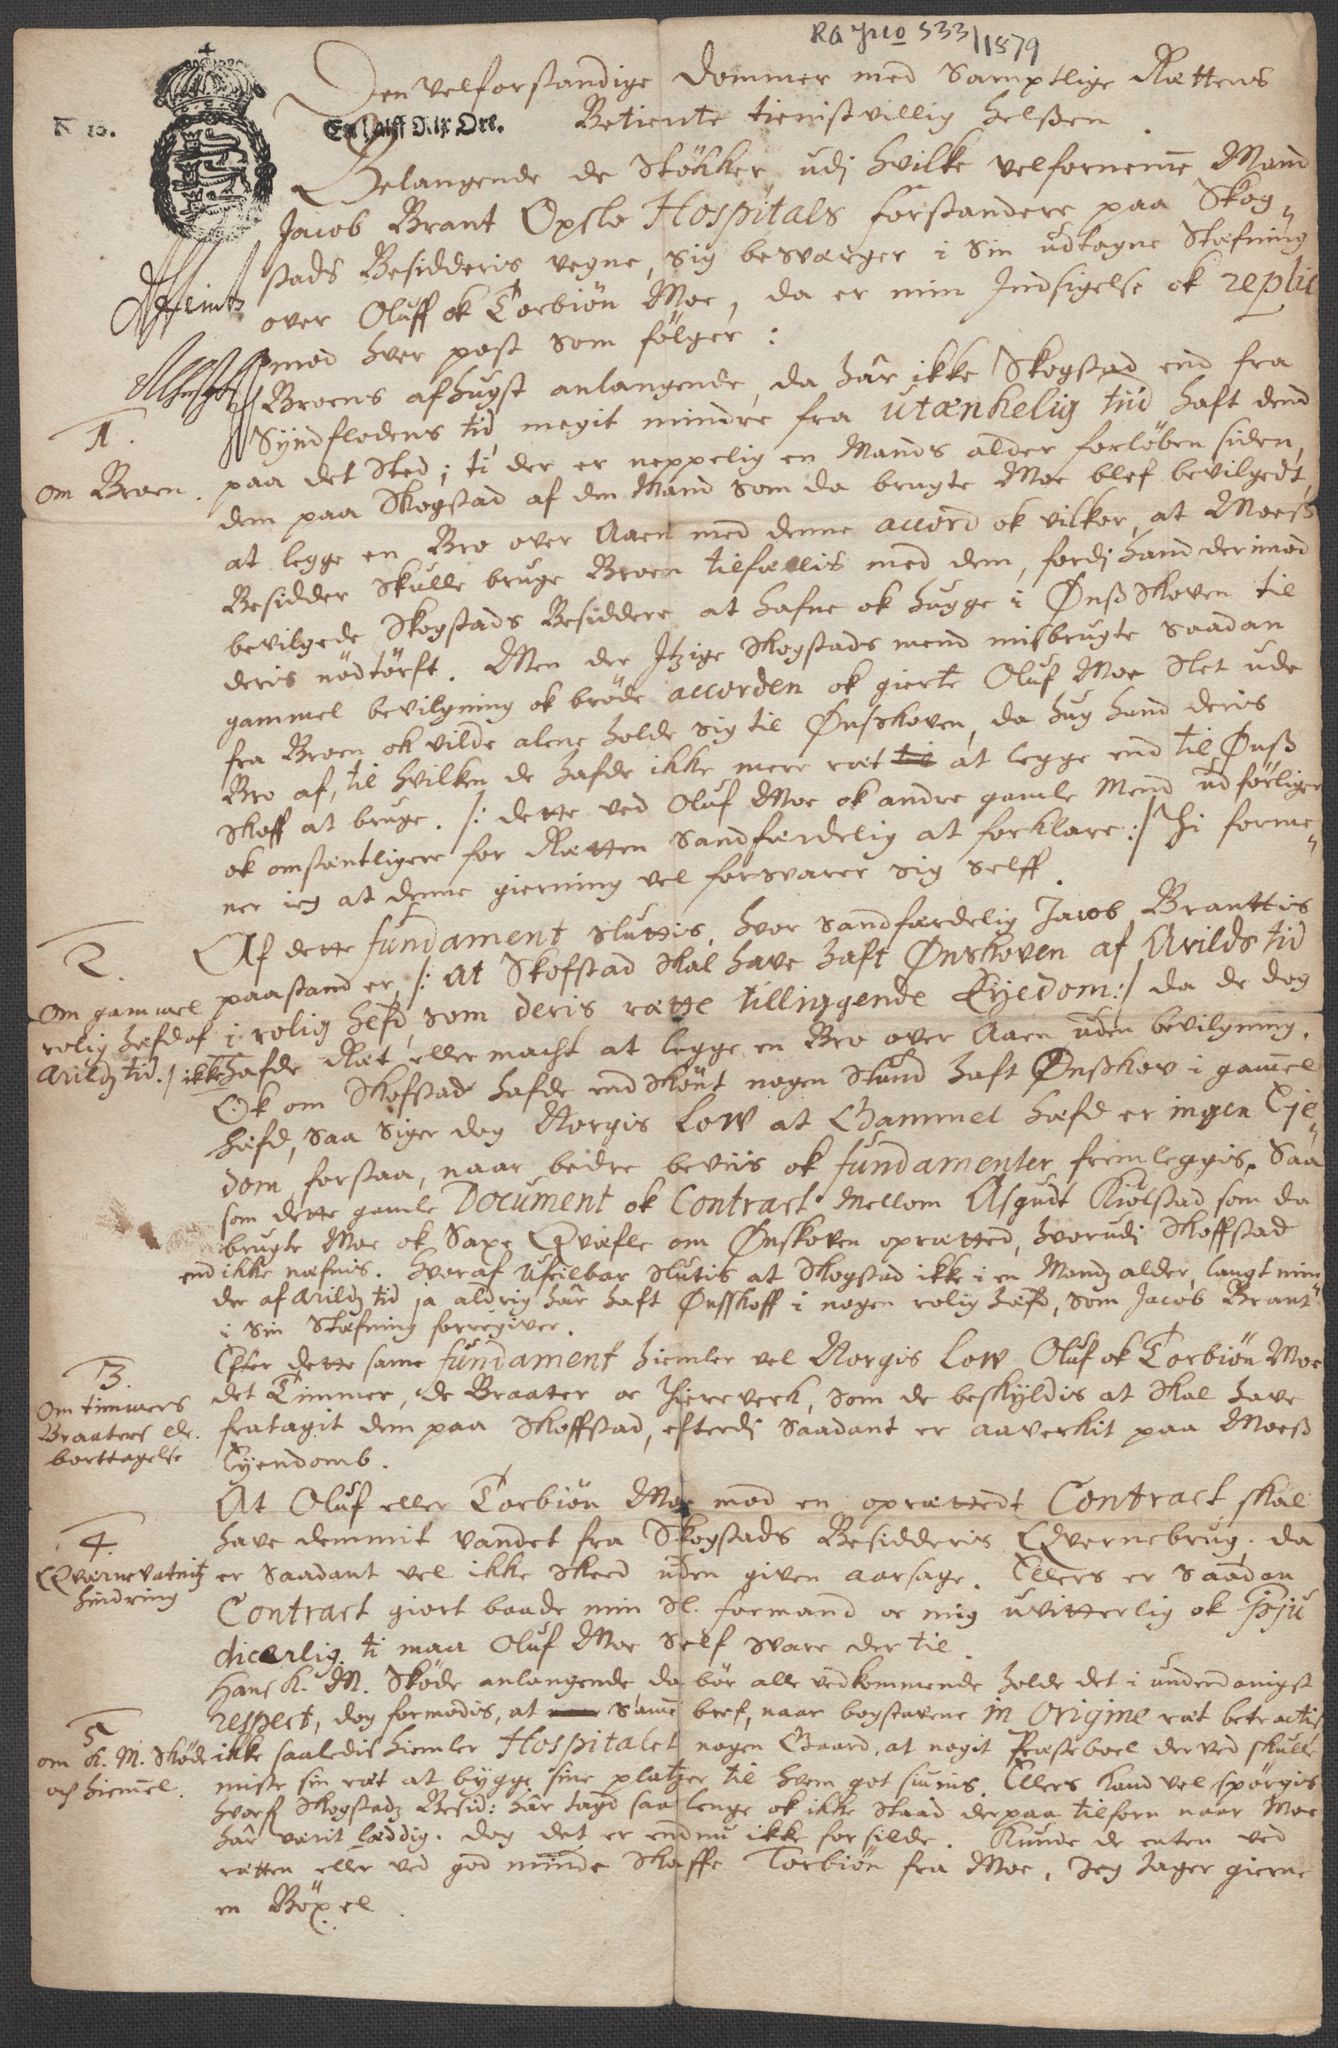 RA Jno 533/1879
N 10.
En halff Dlr. Ort.
Den velforstandige Dommer med Samptlige Rættens
Betiente tienistvillig helßen
Belangende de Støkker udj hvilke velfornemme Mand
Jacob Brant Opslo Hospitals forstandere paa Skog-
stads Besidderis vegne, sig besværger i Sin udtagne Stæfning
over Oluff ok Torbiøn Moe, da er min Indsigelse ok replic
mod hver post som følger:
1.
om Broen.
Broens afhugst anlangende, da hâr ikke Skogstad end fra
Syndflodens tid, megit mindre fra utænkelig tiid haft dend
paa det Sted; ti der er neppelig en Mands alder forløben siden,
dem paa Skogstad af den Mand som da brugte Moe blef bevilgedt,
at legge en Bro over Aaen med denne accord ok vilkor, at Moeß
Besidder Skulle bruge Broen tilfællis med dem, fordj hand derimod
bevilgede Skogstads Besiddere at hafne ok hugge i Ønß Skoven til
deris nødtørft. Men der Itzige Skogstads mend misbrugte saadan
gammel bevilgning ok brøde accorden ok gierte Oluf Moe Slet ude
fra Broen ok vilde alene holde sig til Ønßkoven, da hug hand deris
Bro af, til hvilken de hafde ikke mere ræt at legge end til Ønß
Skoff at bruge. /: dette ved Oluf Moe ok andre gamle Mend udførliger
ok omstæntligere for Rætten Sandfærdelig at forklare:/ Thi forme-
ner ieg at denne gierning vel forsvarer sig selff.
2.
om gammel
rolig hæfd af
Arildz tid.
Af dette fundament sluttis, hvor sandfærdelig Jacob Branttis
paastand er, /: At Skofstad Skal have haft Ønskoven af Arilds tid
i rolig hefd, som deris rætte tilliggende Eyedom:/ da de dog
ikke hafde Ræt eller macht at legge en Bro over Aaen uden bevilgning.
Ok om Skofstad hafde end Skønt nogen Stund haft Ønßkov i gamel
hæfd, saa siger dog Norgis Low at Gammel hæfd er ingen Eje-
dom, forstaa, naar bedre beviis ok fundamenter fremleggis. Saa
som dette gamle Document ok Contract Mellom Asgudt Kiølstad som da
brugte Moe ok Saxe Qvæfle om Ønskoven oprætted, hvorudj Skoffstad
end ikke næfnis. hvoraf Ufeilbar Slutis at Skogstad ikke i en Mandz alder, langt min
dre af Arildz tid ja aldrig hâr haft Ønsskoff i nogen rolig hæfd, som Jacob Brant
i sin Stæfning forregiver.
3.
Om timmers
Braaters etc.
borttagelse
Efter dette same fundament hiemler vel Norgis Low Oluf ok Torbiøn Moe
det Timmer, de Braater oc Thiereverk, som de beskyldis at Skal have
fratagit dem paa Skoffstad, efterdj saadant er aaverkit paa Moeß
Eyendomb.
4.
Qvernevatnitz
hindring
At Oluf eller Torbiøn Moe mod en oprættedt Contract skal
have demmit vandet fra Skogstads Besidderis Qvernebrug. da
er saadant vel ikke Skeed uden given aarsage. Ellers er saadan
Contract giort baade min Sl. formand oc mig uvitterlig ok præju
dicerlig ti maa Oluf Moe self svare der til.
5
om K. M. Skøde
och hiemel.
Hans K. M. Skøde anlangende da bør alle vedkommende holde det i underdanigst
respect, dog formodis, at same bref, naar bogstavene in Origine ræt betractis
ikke saaledis hiemler Hospitalet nogen Gaard, at nogit Præsteboel derved skulle
miste sin ræt at bygge sine platzer til hvem got siunis. Ellers kand vel spørgis
hvorf Skogstadz Besid: hâr tagd saa lenge ok ikke Staad derpaa tilforn naar Moe
hâr værit læddig. Dog det er endnu ikke forsilde. Kunde de enten ved
rætten eller ved god minde Skaffe Torbiøn fra Moe, Jeg tager gierne
en Bøxel.